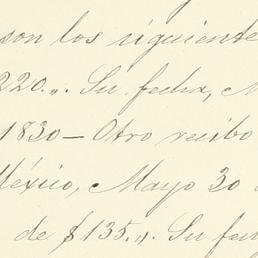 son los siguiente
220.,, Su fecha, M
1830 — Otro recibo
México, Mayo 30
de $135.,, Su fe